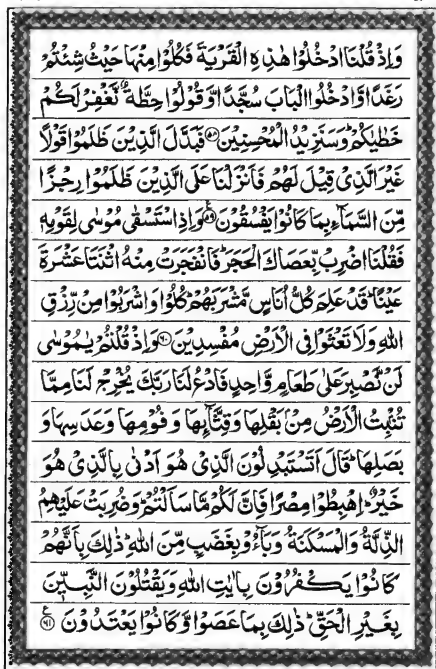 وَاِذْ قُلْنَا ادْخُلُوْا هٰذِهِ الْقَرْيَةَ فَكُلُوْا مِنْهَا حَيْثُ شِئْتُمْ
رَغَدًا وَّادْخُلُوا الْبَابَ سُجَّدًا وَّقُوْلُوْا حِطَّةٌ نَّغْفِرْ لَكُمْ
خَطٰيٰكُمْ ؕ وَسَنَزِيْدُ الْمُحْسِنِيْنَ ﴿۵۸﴾ فَبَدَّلَ الَّذِيْنَ ظَلَمُوْا قَوْلًا
غَيْرَ الَّذِىْ قِيْلَ لَهُمْ فَاَنْزَلْنَا عَلَى الَّذِيْنَ ظَلَمُوْا رِجْزًا
مِّنَ السَّمَآءِ بِمَا كَانُوْا يَفْسُقُوْنَ ﴿۵۹﴾ وَاِذِ اسْتَسْقٰى مُوْسٰى لِقَوْمِهٖ
فَقُلْنَا اضْرِبْ بِّعَصَاكَ الْحَجَرَ ؕ فَانْفَجَرَتْ مِنْهُ اثْنَتَا عَشْرَةَ
عَيْنًا ؕ قَدْ عَلِمَ كُلُّ اُنَاسٍ مَّشْرَبَهُمْ ؕ كُلُوْا وَاشْرَبُوْا مِنْ رِّزْقِ
اللّٰهِ وَلَا تَعْثَوْا فِى الْاَرْضِ مُفْسِدِيْنَ ﴿۶۰﴾ وَاِذْ قُلْتُمْ يٰمُوْسٰى
لَنْ نَّصْبِرَ عَلٰى طَعَامٍ وَّاحِدٍ فَادْعُ لَنَا رَبَّكَ يُخْرِجْ لَنَا مِمَّا
تُنْۢبِتُ الْاَرْضُ مِنْۢ بَقْلِهَا وَقِثَّآئِهَا وَفُوْمِهَا وَعَدَسِهَا وَ
بَصَلِهَا ؕ قَالَ اَتَسْتَبْدِلُوْنَ الَّذِىْ هُوَ اَدْنٰى بِالَّذِىْ هُوَ
خَيْرٌ ؕ اِهْبِطُوْا مِصْرًا فَاِنَّ لَكُمْ مَّا سَاَلْتُمْ ؕ وَضُرِبَتْ عَلَيْهِمُ
الذِّلَّةُ وَالْمَسْكَنَةُ وَبَآءُوْ بِغَضَبٍ مِّنَ اللّٰهِ ؕ ذٰلِكَ بِاَنَّهُمْ
كَانُوْا يَكْفُرُوْنَ بِاٰيٰتِ اللّٰهِ وَيَقْتُلُوْنَ النَّبِيّٖنَ
بِغَيْرِ الْحَقِّ ؕ ذٰلِكَ بِمَا عَصَوْا وَّكَانُوْا يَعْتَدُوْنَ ﴿۶۱﴾